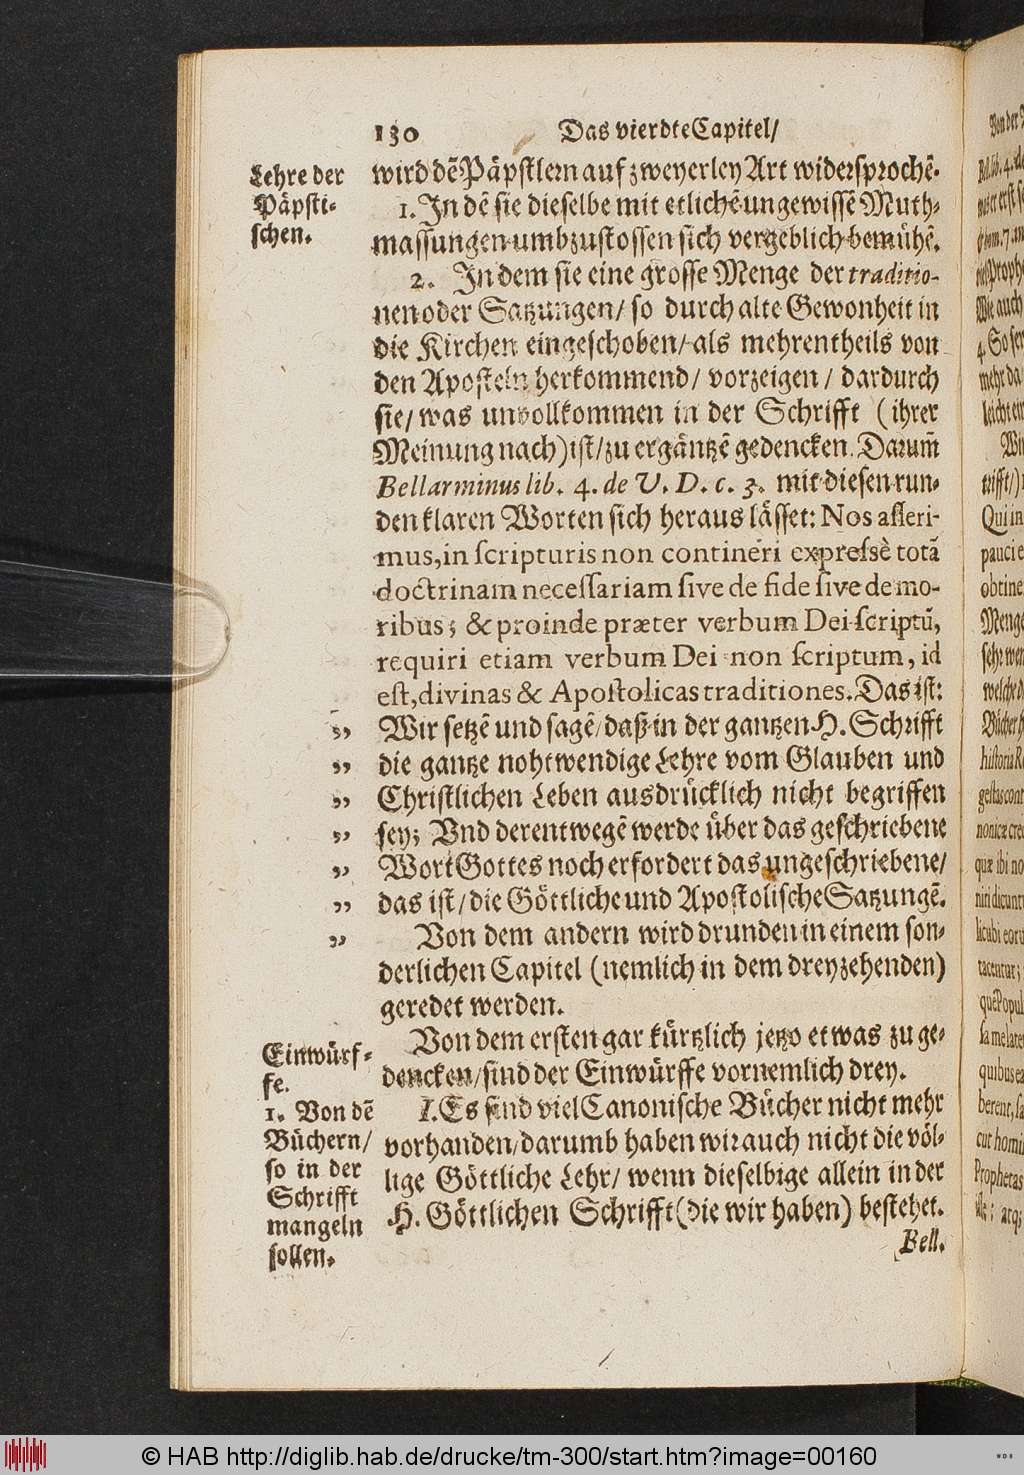 130 Das vierdte Capitel/
Lehre der
Päpsti-
schen.
wird dẽ Päpstlern auf zweyerley Art widersprochẽ.
1. In dẽ sie dieselbe mit etlichẽ ungewissẽ Muth-
massungen umbzustossen sich vergeblich bemühẽ.
2. In dem sie eine grosse Menge der traditio-
nen oder Satzungen/ so durch alte Gewonheit in
die Kirchen eingeschoben/ als mehrentheils von
den Aposteln herkommend/ vorzeigen/ dardurch
sie/ was unvollkommen in der Schrifft (ihrer
Meinung nach) ist/ zu ergäntzẽ gedencken. Darum̃
Bellarminus lib. 4. de V. D. c. 3. mit diesen run-
den klaren Worten sich heraus lässet: Nos asseri-
mus, in scripturis non contineri expressè totã
doctrinam necessariam sive de fide sive de mo-
ribus; & proinde præter verbum Dei scriptũ,
requiri etiam verbum Dei non scriptum, id
est, divinas & Apostolicas traditiones. Das ist:
„ Wir setzẽ und sagẽ/ daß in der gantzen H. Schrifft
„ die gantze nohtwendige Lehre vom Glauben und
„ Christlichen Leben ausdrücklich nicht begriffen
„ sey; Vnd derentwegẽ werde über das geschriebene
„ Wort Gottes noch erfordert das ungeschriebene/
„ das ist/ die Göttliche und Apostolische Satzungẽ.
„ Von dem andern wird drunden in einem son-
derlichen Capitel (nemlich in dem dreyzehenden)
geredet werden.
Von dem ersten gar kürtzlich jetzo etwas zu ge-
dencken/ sind der Einwürffe vornemlich drey.
Einwürf-
fe.
1. Von dẽ
Büchern/
so in der
Schrifft
mangeln
sollen.
I. Es sind viel Canonische Bücher nicht mehr
vorhanden/ darumb haben wir auch nicht die völ-
lige Göttliche Lehr/ wenn dieselbige allein in der
H. Göttlichen Schrifft (die wir haben) bestehet.
Bell.
Qui in
pauci e
obtine
Menge
welche
© HAB http://diglib.hab.de/drucke/tm-300/start.htm?image=00160